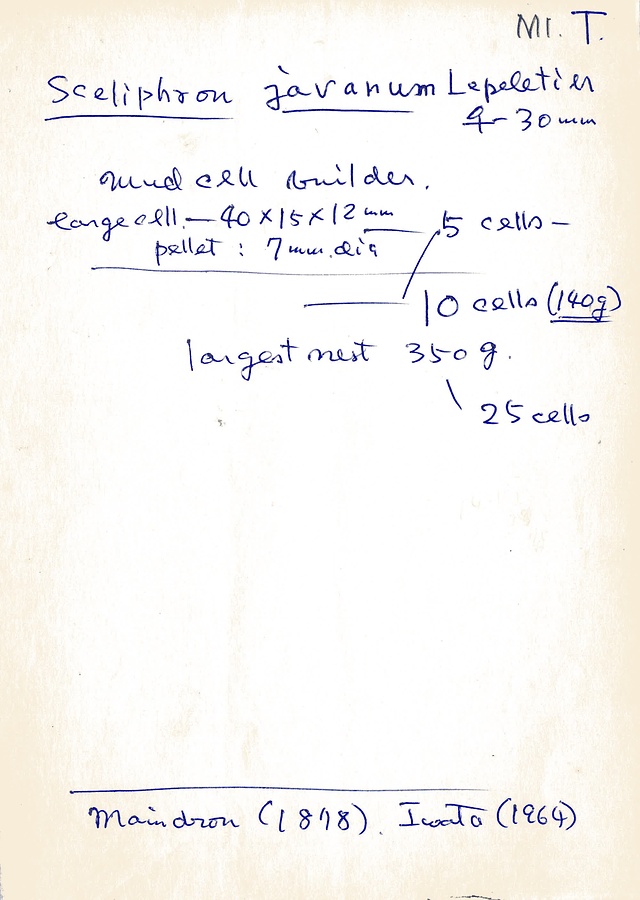 MI. T.
Sceliphron javanum Lepeletier
♀ 30 mm
mud cell builder.
large cell. — 40 × 15 × 12 mm
5 cells —
pellet : 7 mm. dia
10 cells (140g)
largest nest 350 g.
25 cells
Maindron (1878). Iwata (1964)